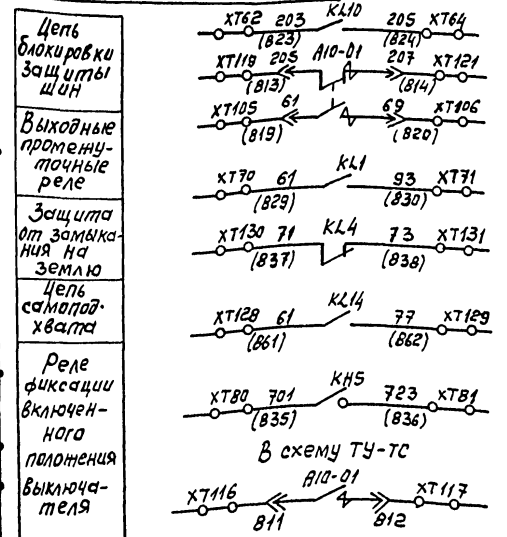 Цепь
блокировки
защиты
шин
Выходные
промежу-
точные
реле
Защита
от замыка-
ния на
землю
Цепь
самопод-
хвата
Реле
фиксации
включен-
ного
положения
выключа-
теля
XT62 203 KL10 205 XT64
(823) (824)
XT119 205 A10-01 207 XT121
(813) (814)
XT105 61 69 XT106
(819) (820)
XT70 61 KL1 93 XT71
(829) (830)
XT130 71 KL4 73 XT131
(837) (838)
XT128 61 KL14 77 XT129
(861) (862)
XT80 701 KH5 723 XT81
(835) (836)
В схему ТУ-ТС
XT116 A10-01 XT117
811 812